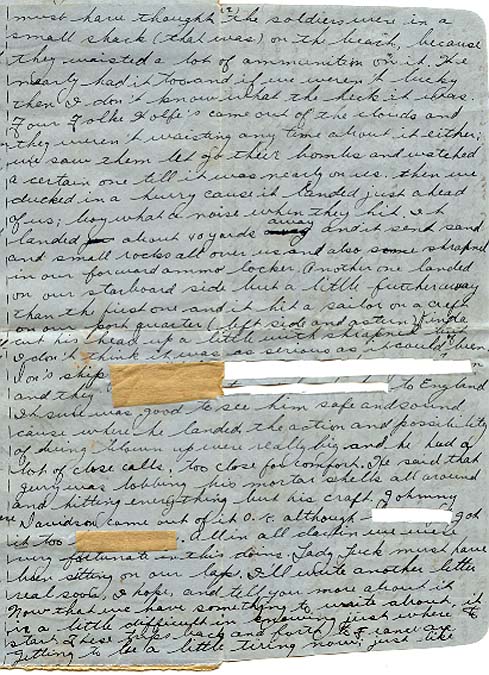 must have thought the soldiers were in a
small shack (that was) on the beach, because
they waisted a lot of ammunition on it. We
nearly had it too and if we weren't lucky
then I don't know what the heck it was.
Four Folke Wolfe's came out of the clouds and
they weren't waisting any time about it either;
we saw them let go their bombs and watched
a certain one till it was nearly on us. then we
ducked in a hurry cause it landed just ahead
of us; boy what a noise when they hit. It
landed about 40 yards away and it sent sand
and small rocks all over us and also some shrapnel
in our forward ammo locker. Another one landed
on our starboard side but a little futher away
than the first one and it hit a sailor on a craft
on our port quarter (left side and astern) kinda
cut his head up a little with shrapnel but
I don't think it was as serious as it could been
Don's ship
and they to England
It sure was good to see him safe and sound
cause where he landed the action and possibility
of being blown up were really big and he had a
lot of close calls, too close for comfort. He said that
gerry was lobbing his mortar shells all around
and hitting everything but his craft. Johnny
Davidson came out of it O.K. although got
it too . all in all each in we were
very fortunate in this doins. Lady Luck must have
been sitting on our lap. I'll write another letter
real soon, I hope, and tell you more about it
Now that we have something to write about, it
is a little difficult in knowing just where to
start. These trips back and forth to France are
getting to be a little tiring now, just like